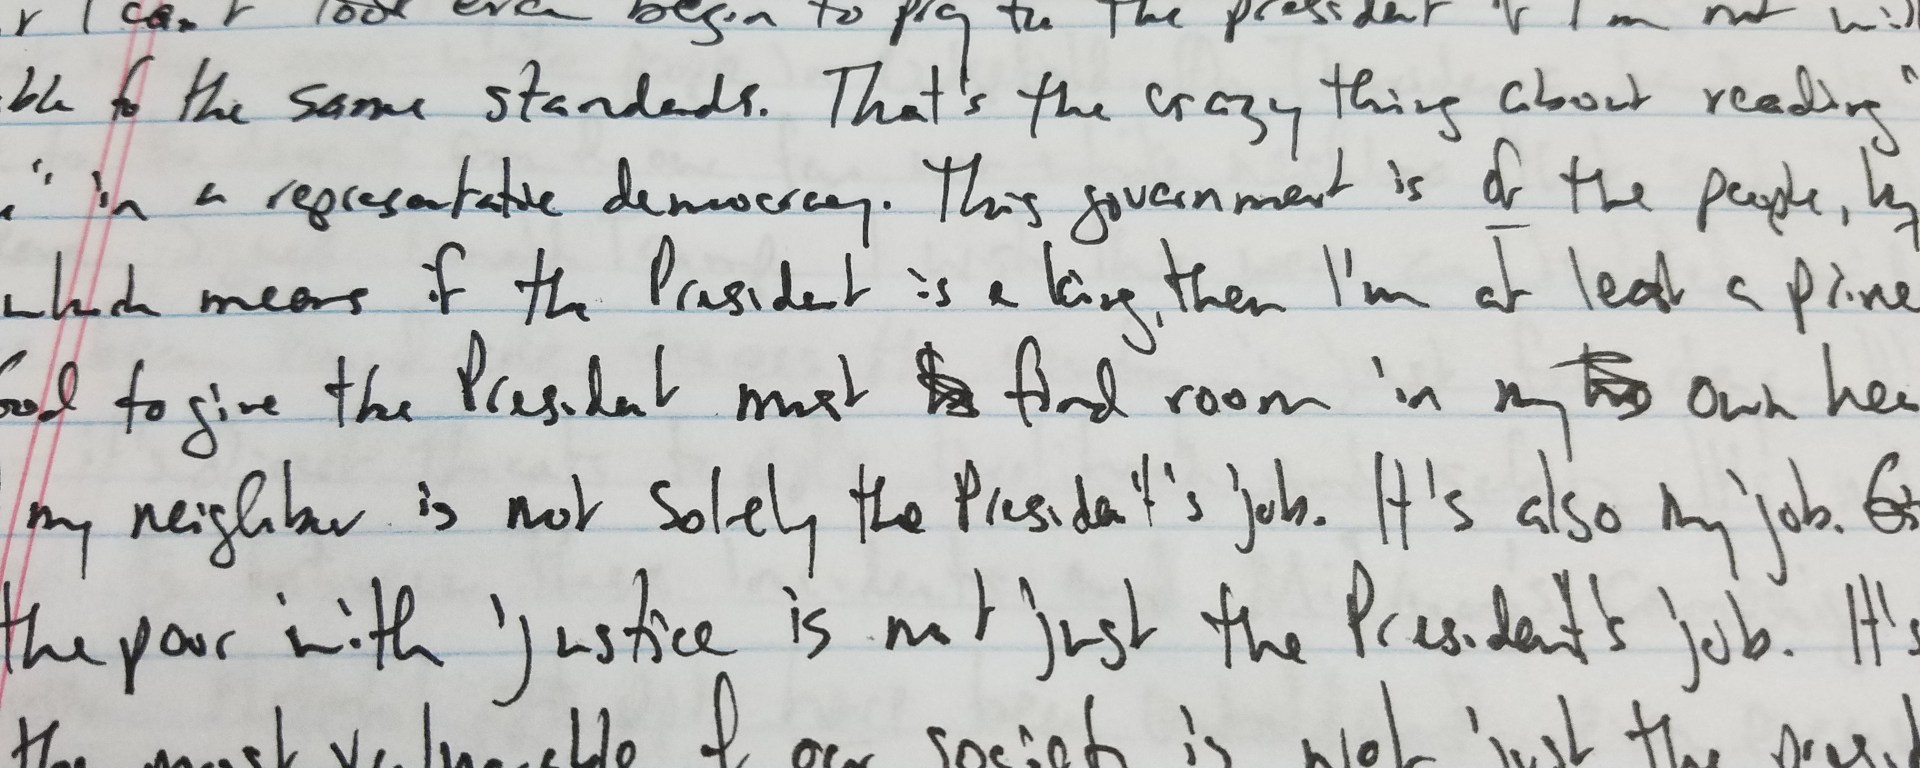 I can't look even begin to pray for the president if I'm not
to the same standards. That's the crazy thing about reading "
" in a representative democracy. This government is of the people, by
which means if the President is a king, then I'm at least a prince
God to give the President must find room in my own
my neighbor is not solely the President's job. It's also my job.
the poor with justice is not just the President's job. It's
the most vulnerable of our society is not just the